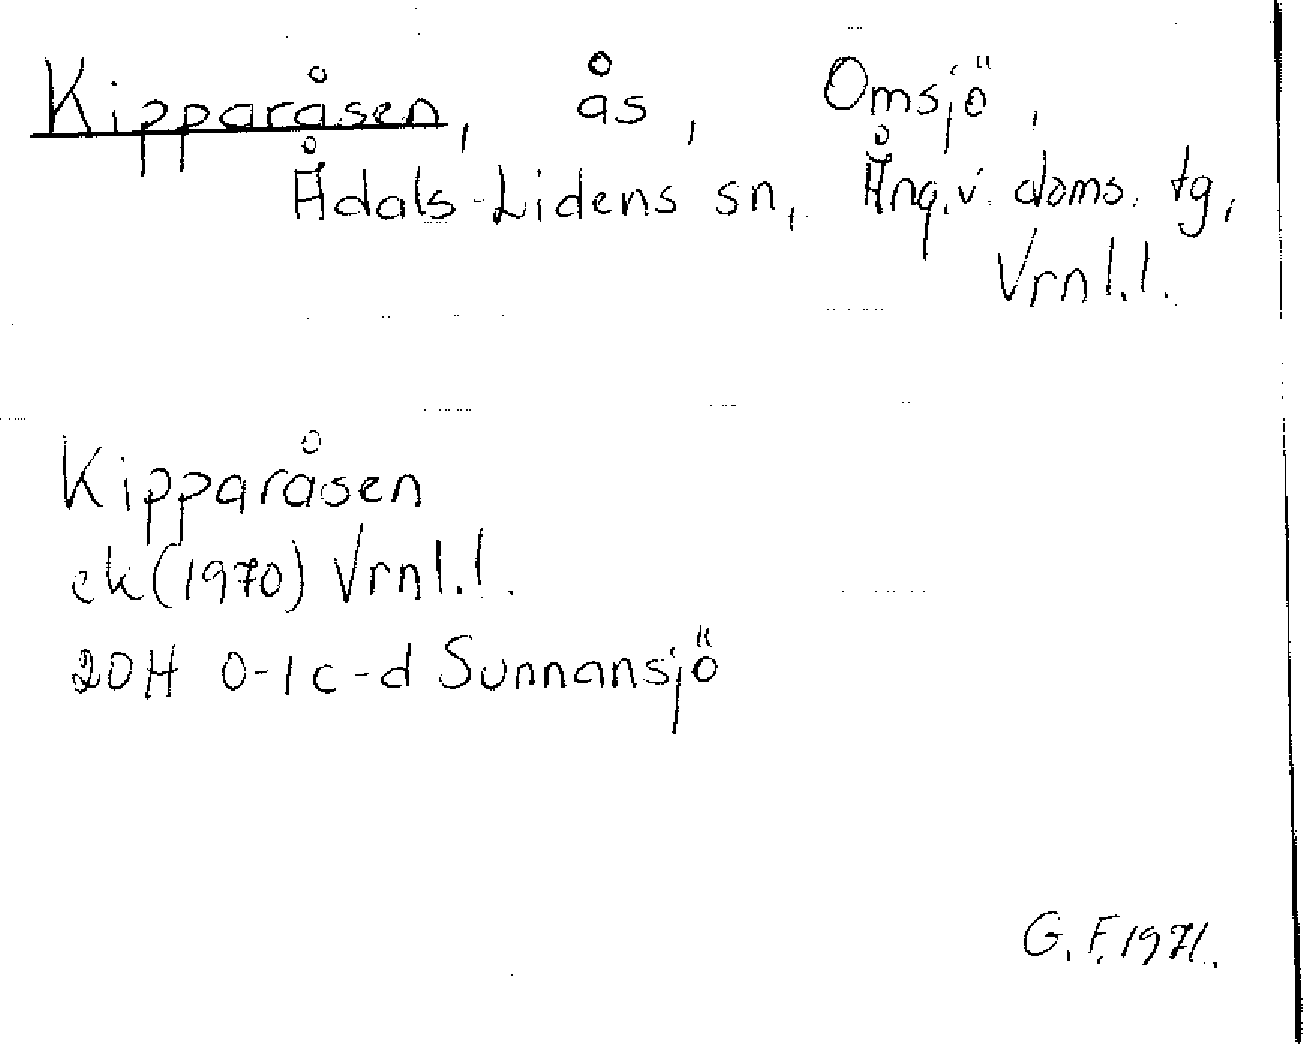 Kipparåsen, ås, Omsjö,
Ådals-Lidens sn, Ång.v. doms. tg,
Vrnl.l.
Kipparåsen
ek(1970) Vrnl.l.
20H 0-1 c-d Sunnansjö
G.F. 1971.